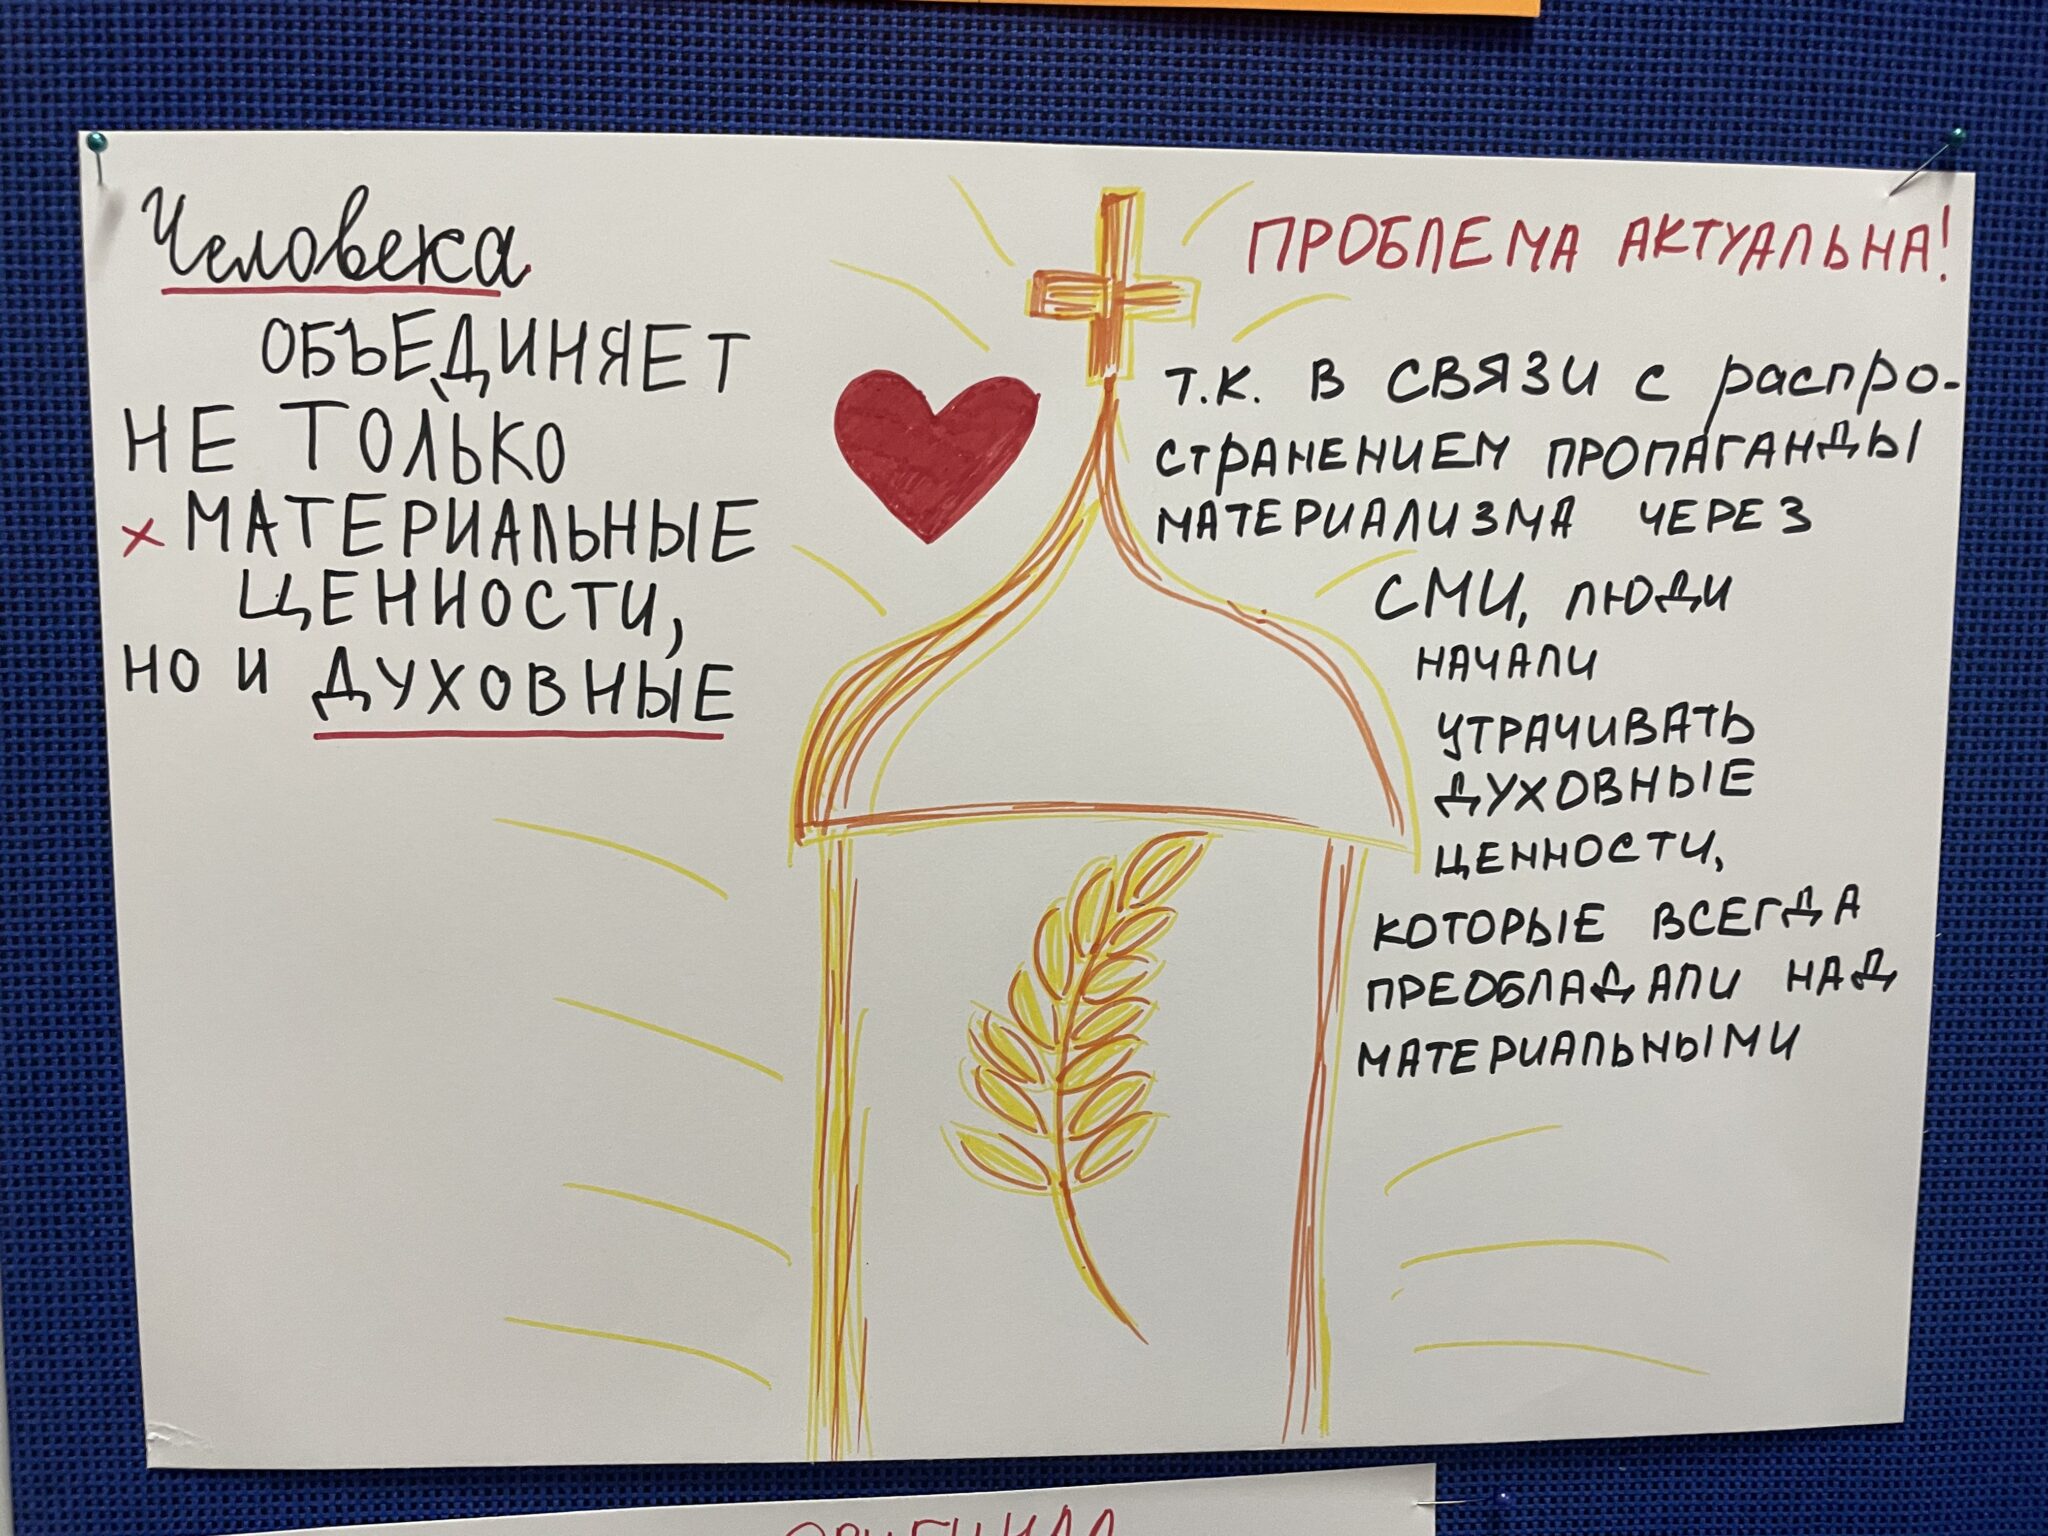 Человека
ОБЪЕДИНЯЕТ
НЕ ТОЛЬКО
× МАТЕРИАЛЬНЫЕ
ЦЕННОСТИ,
НО И ДУХОВНЫЕ
ПРОБЛЕМА АКТУАЛЬНА!
Т.К. В СВЯЗИ С распро-
СТРАНЕНИЕМ ПРОПАГАНДЫ
МАТЕРИАЛИЗМА ЧЕРЕЗ
СМИ, ЛЮДИ
НАЧАЛИ
УТРАЧИВАТЬ
ДУХОВНЫЕ
ЦЕННОСТИ,
КОТОРЫЕ ВСЕГДА
ПРЕОБЛАДАЛИ НАД
МАТЕРИАЛЬНЫМИ